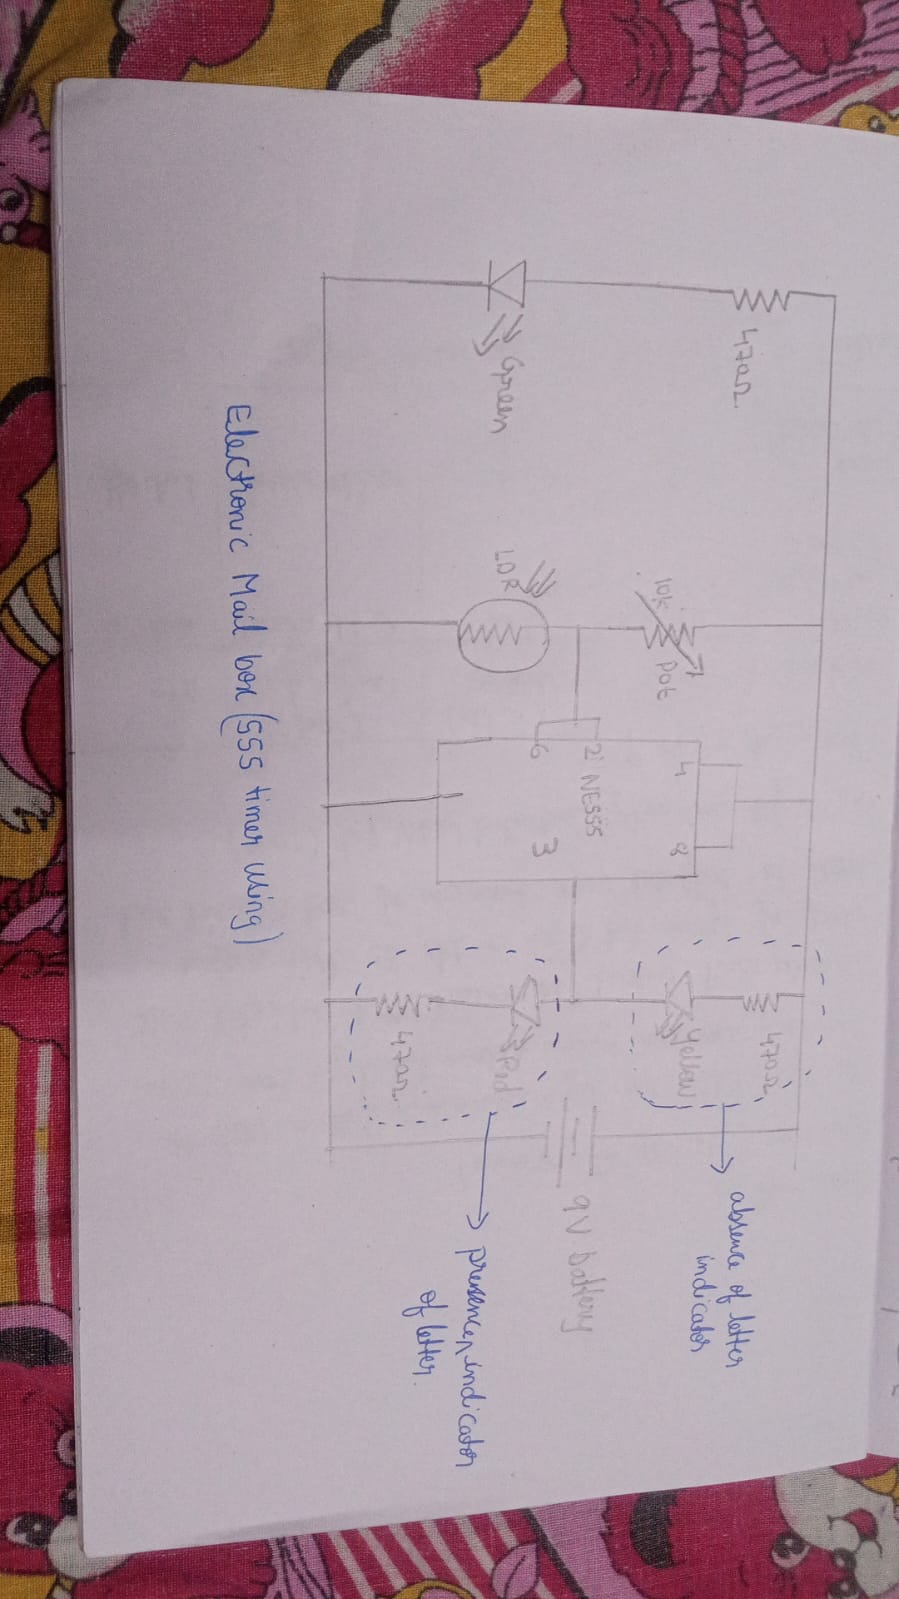 470Ω
Green
10k
Pot
LDR
4
8
2
NE555
6
3
470Ω
Yellow
Red
470Ω
9V battery
absence of letter
indicator
presence indicator
of letter.
Electronic Mail box (555 timer using)